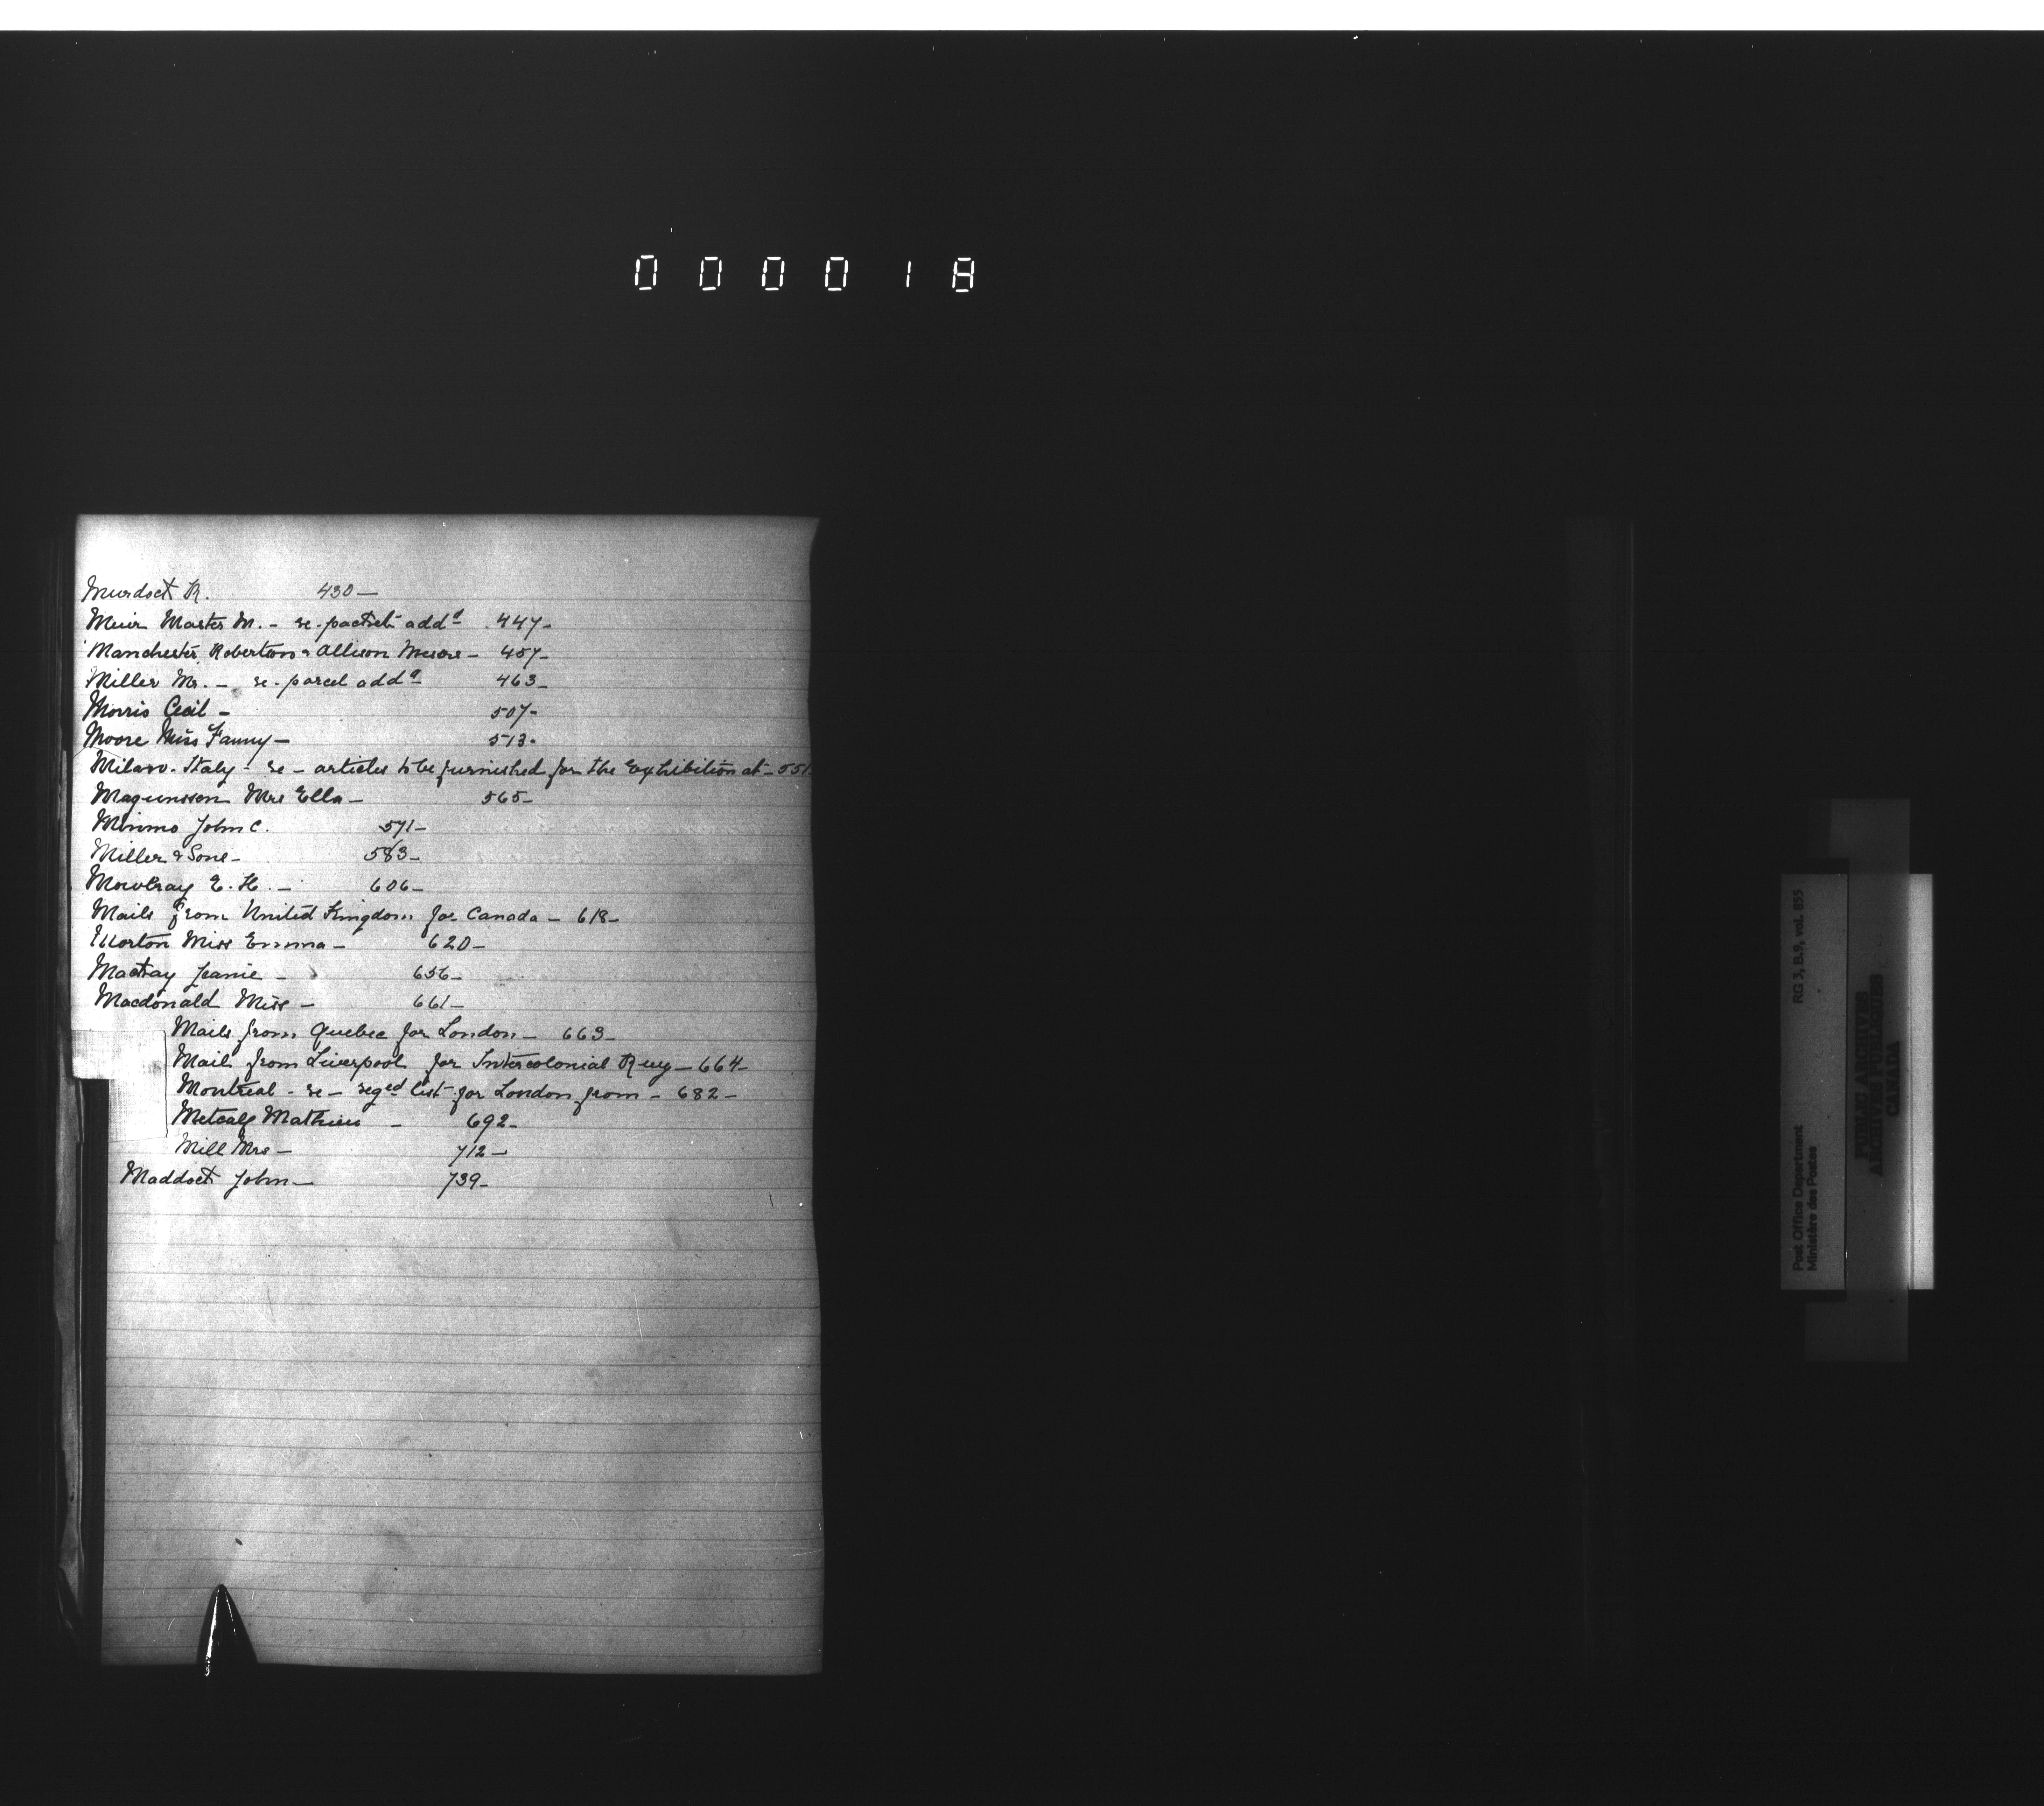 000018
Murdock R. 430 —
Meir Master M. - re - packet add^d 447 -
Manchester, Robertson & Allison Messrs - 457 -
Miller Mr. - re - parcel add^d 463 -
Morris Cecil - 507 -
Moore Miss Fanny - 513 -
Milano - Italy - re - articles to be furnished for the Exhibition at - 551
Magunsson Mrs Ella - 565 -
John C. 571 -
Miller & Sons - 583 -
Mowbray E. H. - 606 -
Mails from United Kingdom for Canada - 618 -
Morton Miss Emma - 620 -
Mackay Jeanie - 656 -
Macdonald Miss - 661 -
Mails from Quebec for London - 663 -
Mail from Liverpool for Intercolonial Rwy - 664 -
Montreal - re - reg^ed list for London from - 682 -
Metcalf Mathieu - 692 -
Mill Mrs - 712 -
Maddock John - 739 -
Post Office Department RG 3, B.9, vol. 855
Ministère des Postes
PUBLIC ARCHIVES
ARCHIVES PUBLIQUES
CANADA